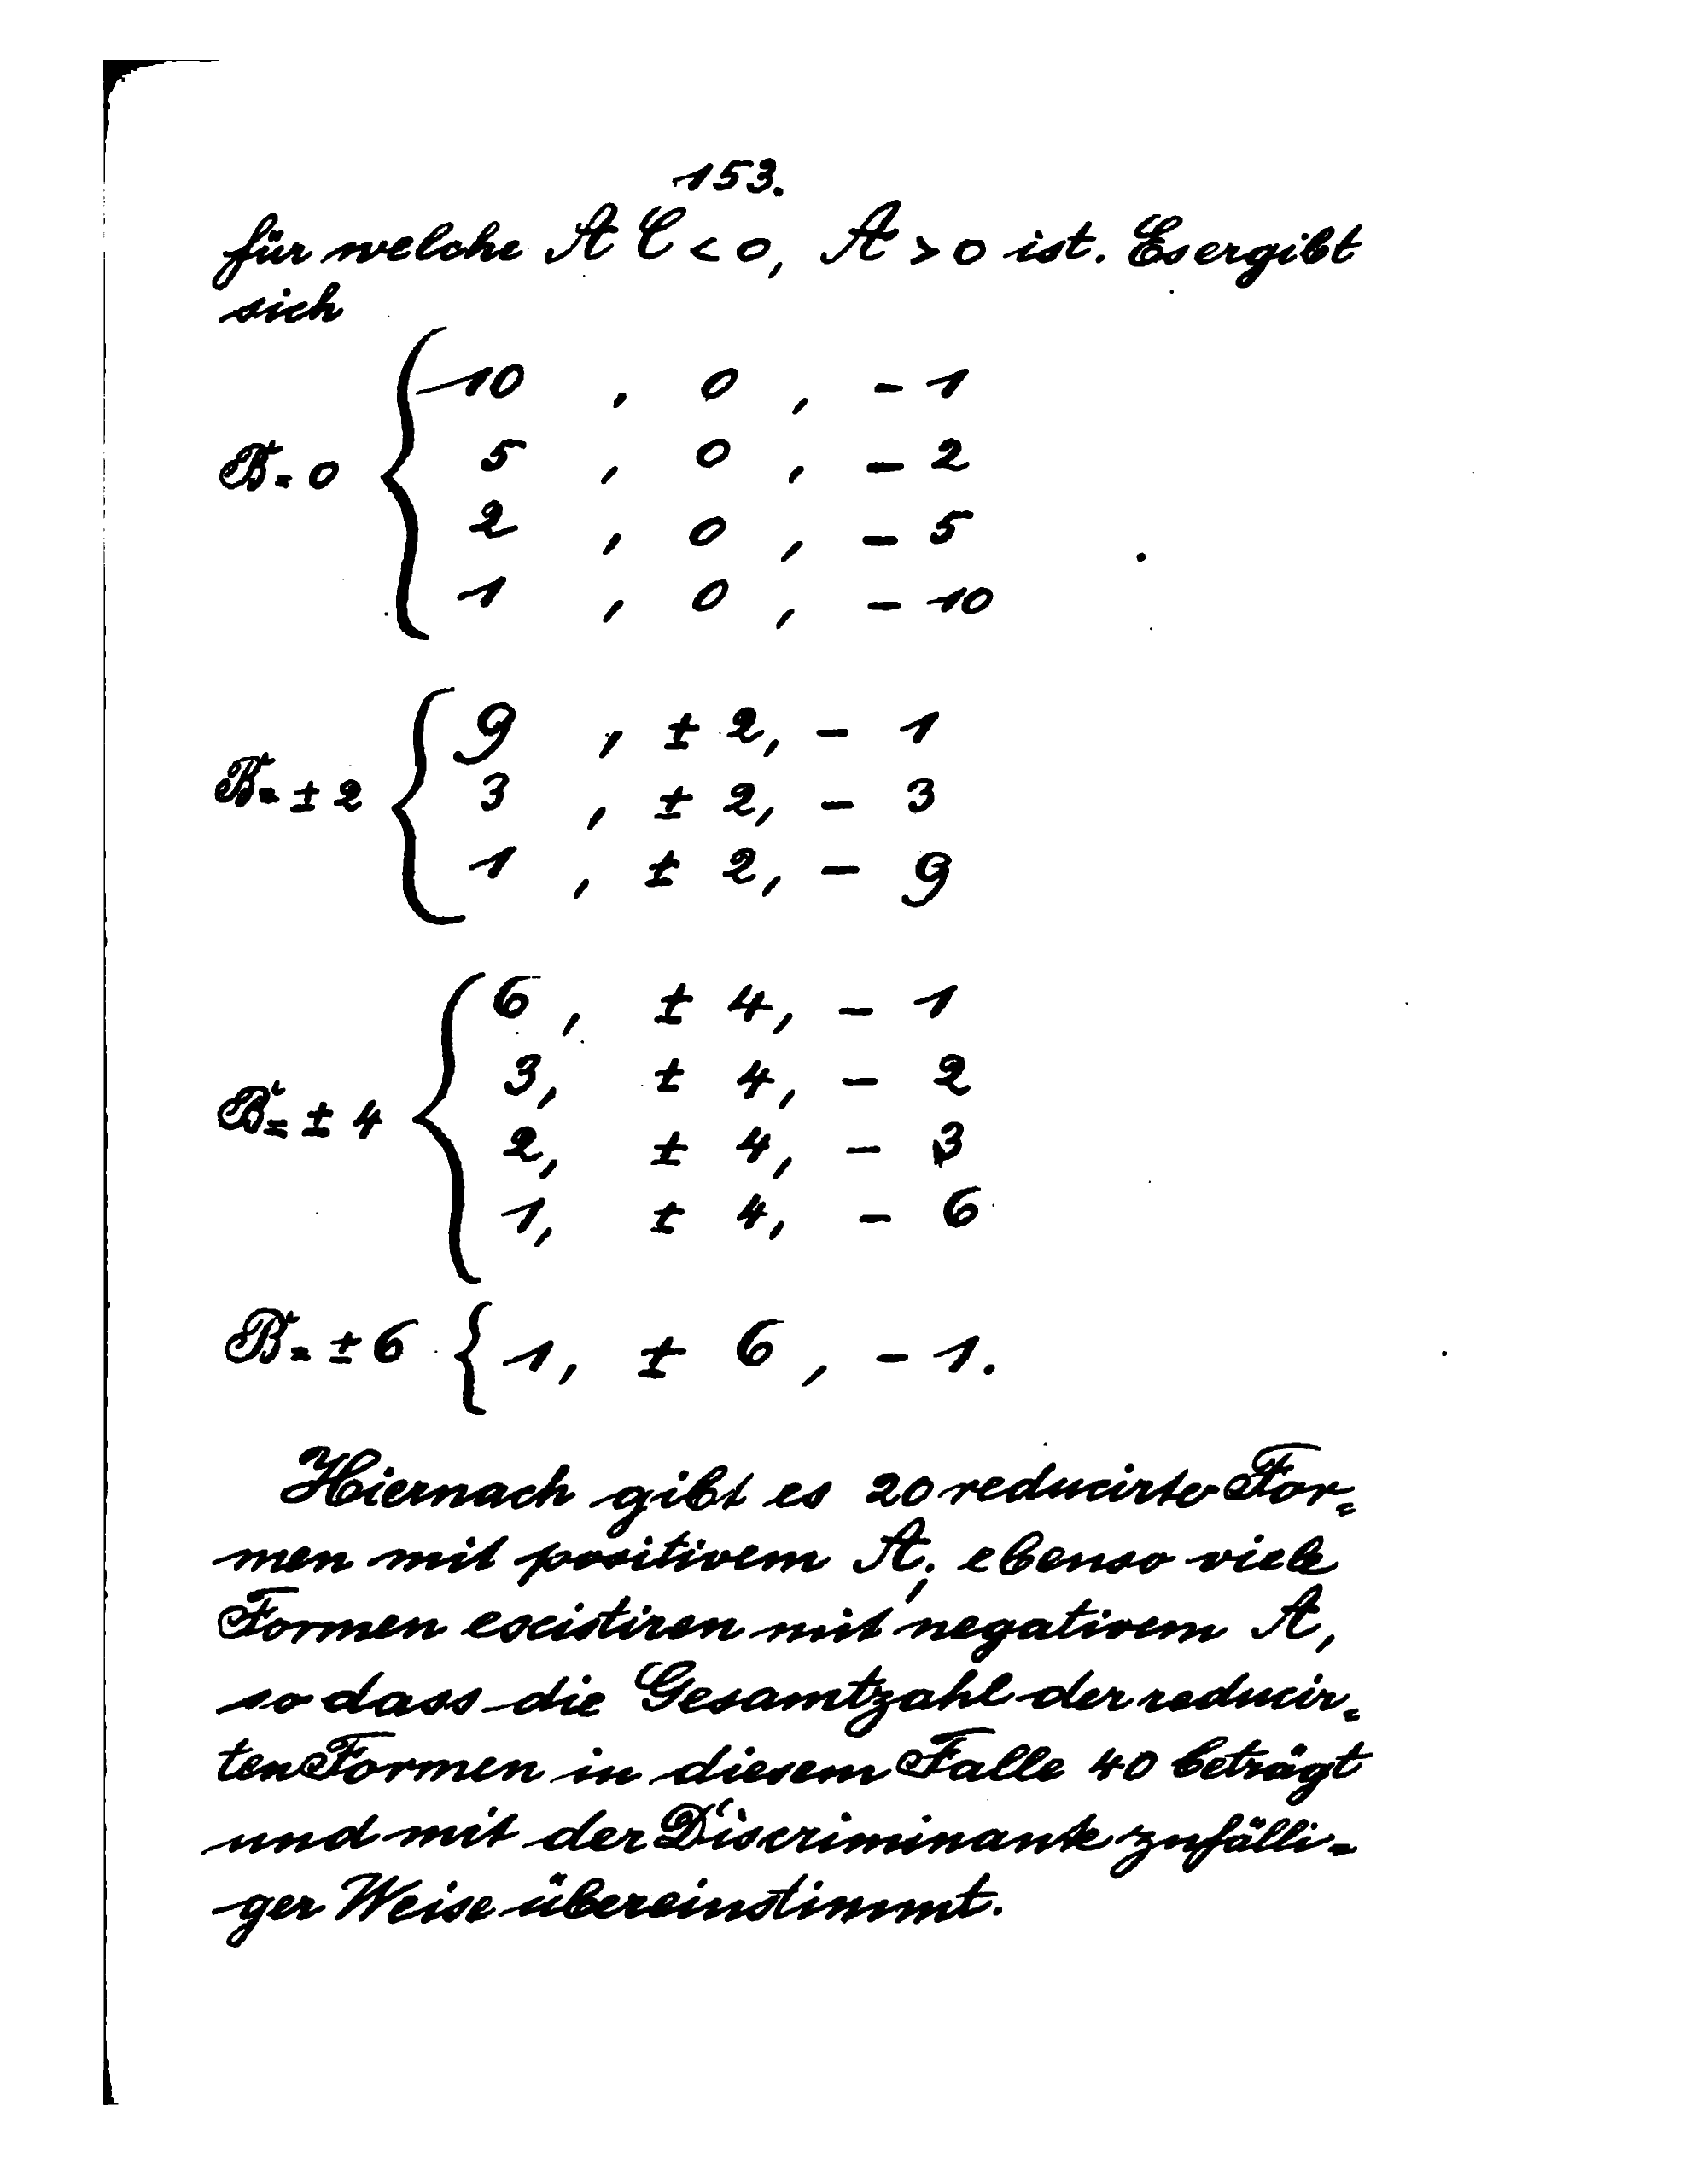 153.
für welche A C < 0, A > 0 ist. Es ergibt
sich
B = 0 { 10 , 0 , - 1
5 , 0 , - 2
2 , 0 , - 5
1 , 0 , - 10
B = ± 2 { 9 , ± 2, - 1
3 , ± 2, - 3
1 , ± 2, - 9
B = ± 4 { 6 , ± 4, - 1
3, ± 4, - 2
2, ± 4, - 3
1, ± 4, - 6
B = ± 6 { 1, ± 6 , - 1.
Hiernach gibt es 20 reducirte For=
men mit positivem A; ebenso viele
Formen existiren mit negativem A,
so dass die Gesamtzahl der reducir=
ten Formen in diesem Falle 40 beträgt
und mit der Discriminante zufälli=
ger Weise übereinstimmt.